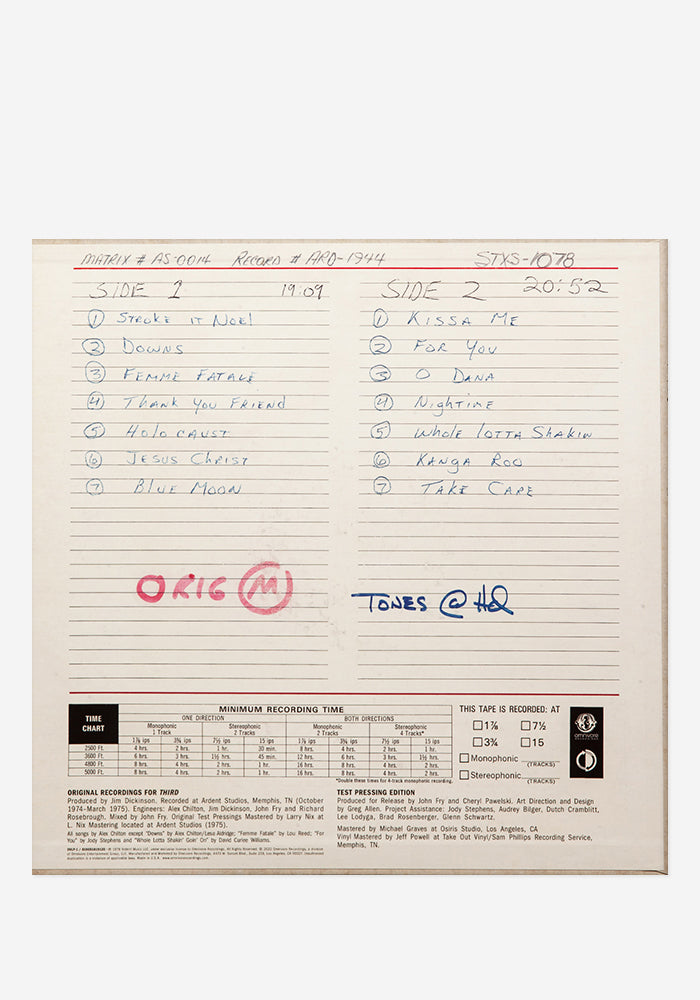 MATRIX # AS-0014 RECORD # ARD-1944 STXS-1078
SIDE 1 19:09
1 STROKE IT NOEL
2 DOWNS
3 FEMME FATALE
4 THANK YOU FRIEND
5 HOLOCAUST
6 JESUS CHRIST
7 BLUE MOON
ORIG M
SIDE 2 20:52
1 KISSA ME
2 FOR YOU
3 O DANA
4 NighTime
5 Whole lOTTA SHAKIN
6 KANGA ROO
7 TAKE CARE
TONES @ Hd
TIME CHART
MINIMUM RECORDING TIME
ONE DIRECTION BOTH DIRECTIONS
Monophonic 1 Track Stereophonic 2 Tracks Monophonic 2 Tracks Stereophonic 4 Tracks*
1⅞ ips 3¾ ips 7½ ips 15 ips 1⅞ ips 3¾ ips 7½ ips 15 ips
2500 Ft. 4 hrs. 2 hrs. 1 hr. 30 min. 8 hrs. 4 hrs. 2 hrs. 1 hr.
3600 Ft. 6 hrs. 3 hrs. 1½ hrs. 45 min. 12 hrs. 6 hrs. 3 hrs. 1½ hrs.
4800 Ft. 8 hrs. 4 hrs. 2 hrs. 1 hr. 16 hrs. 8 hrs. 4 hrs. 2 hrs.
5000 Ft. 8 hrs. 4 hrs. 2 hrs. 1 hr. 16 hrs. 8 hrs. 4 hrs. 2 hrs.
*Double these times for 4-track monophonic recording.
THIS TAPE IS RECORDED: AT
1⅞ 7½
3¾ 15
Monophonic (TRACKS)
Stereophonic (TRACKS)
omnivore
RECORDINGS
ORIGINAL RECORDINGS FOR THIRD
Produced by Jim Dickinson. Recorded at Ardent Studios, Memphis, TN (October
1974-March 1975). Engineers: Alex Chilton, Jim Dickinson, John Fry and Richard
Rosebrough. Mixed by John Fry. Original Test Pressings Mastered by Larry Nix at
L. Nix Mastering located at Ardent Studios (1975).
All songs by Alex Chilton except "Downs" by Alex Chilton/Lesa Aldridge; "Femme Fatale" by Lou Reed; "For
You" by Jody Stephens and "Whole Lotta Shakin' Goin' On" by David Curlee Williams.
TEST PRESSING EDITION
Produced for Release by John Fry and Cheryl Pawelski. Art Direction and Design
by Greg Allen. Project Assistance: Jody Stephens, Audrey Bilger, Dutch Cramblitt,
Lee Lodyga, Brad Rosenberger, Glenn Schwartz.
Mastered by Michael Graves at Osiris Studio, Los Angeles, CA
Vinyl Mastered by Jeff Powell at Take Out Vinyl/Sam Phillips Recording Service,
Memphis, TN.